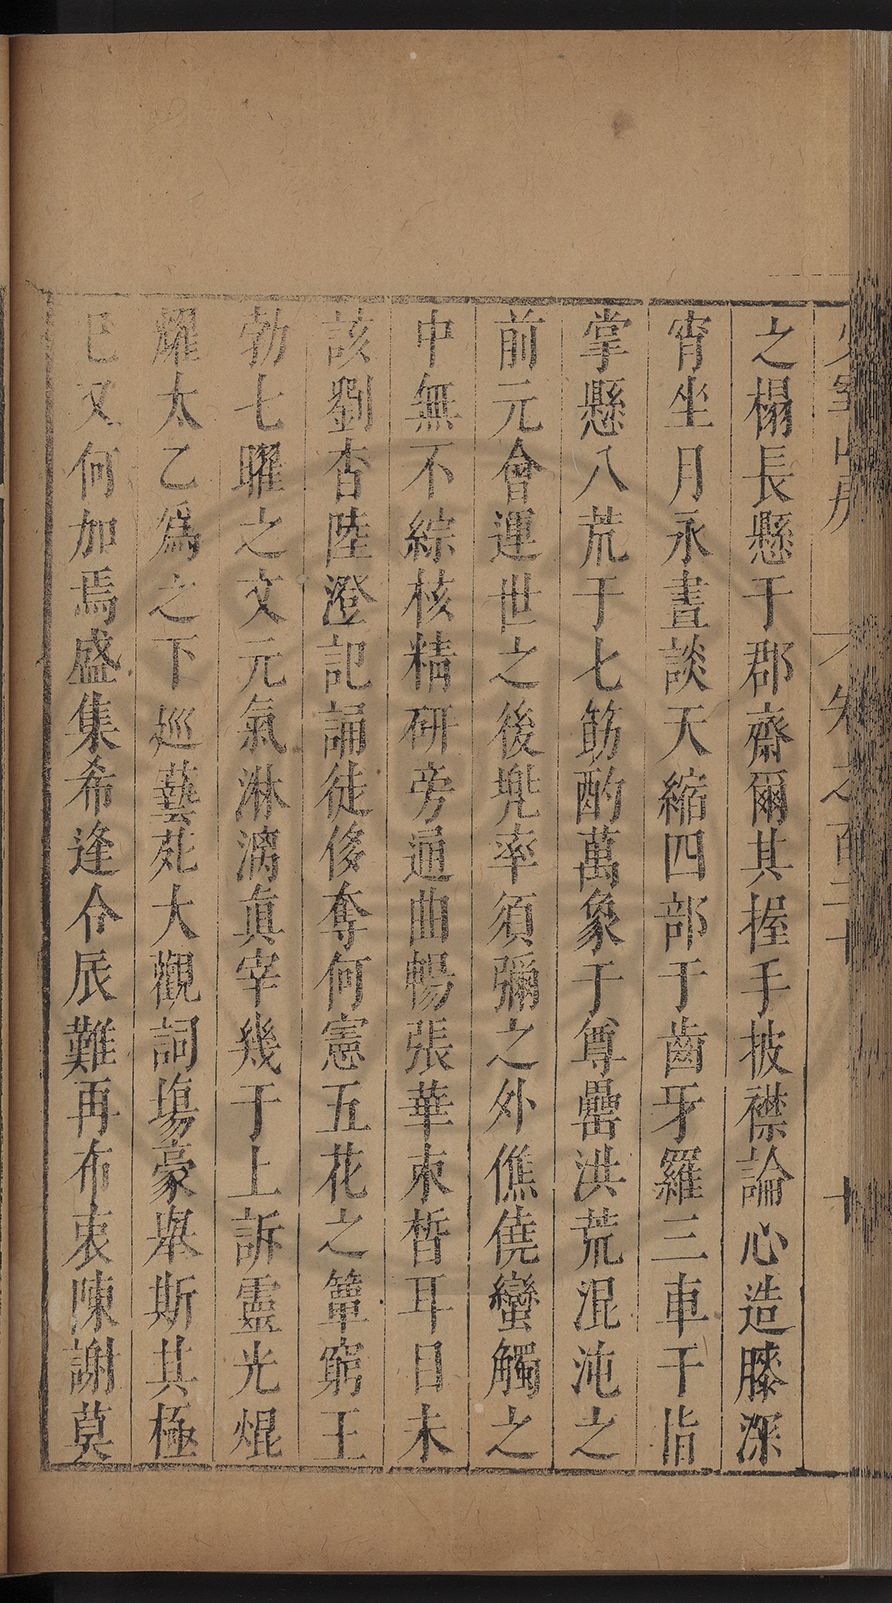 之榻長懸于郡齋爾其握手披襟論心造膝深
宵坐月永晝談天縮四部于齒牙羅三車于指
掌懸八荒于七筯酌萬象于尊罍洪荒混沌之
前元會運世之後兠率須彌之外僬僥蠻觸之
中無不綜核精研旁通曲暢張華束晳耳目未
該劉杳陸澄記誦徒侈奪何憲五花之簟窮王
勃七曜之文元氣淋漓眞宰幾于上訴靈光焜
耀太乙爲之下巡藝苑大觀詞塲豪舉斯其極
已又何加焉盛集希逢令辰難再布衷陳謝莫